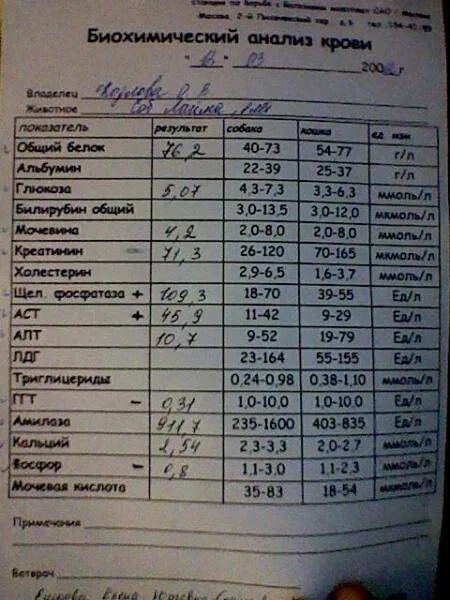 Станция по борьбе с болезнями животных САО г. Москвы
Москва, 2-й
Биохимический анализ крови
" 13 " 03 200 г
Владелец
Животное Соб
показатель результат собака кошка ед. изм
Общий белок 76,2 40-73 54-77 г/л
Альбумин 22-39 25-37 г/л
Глюкоза 5,07 4,3-7,3 3,3-6,3 ммоль/л
Билирубин общий 3,0-13,5 3,0-12,0 мкмоль/л
Мочевина 4,2 2,0-8,0 2,0-8,0 ммоль/л
Креатинин 71,3 26-120 70-165 мкмоль/л
Холестерин 2,9-6,5 1,6-3,7 ммоль/л
Щел. фосфатаза + 109,3 18-70 39-55 Ед/л
АСТ + 45,9 11-42 9-29 Ед/л
АЛТ 10,7 9-52 19-79 Ед/л
ЛДГ 23-164 55-155 Ед/л
Триглицериды 0,24-0,98 0,38-1,10 ммоль/л
ГГТ - 0,31 1,0-10,0 1,0-10,0 Ед/л
Амилаза 911,7 235-1600 403-835 Ед/л
Кальций 2,54 2,3-3,3 2,0-2,7 ммоль/л
Фосфор - 0,8 1,1-3,0 1,1-2,3 ммоль/л
Мочевая кислота 35-83 18-54 мкмоль/л
Примечания
Ветврач